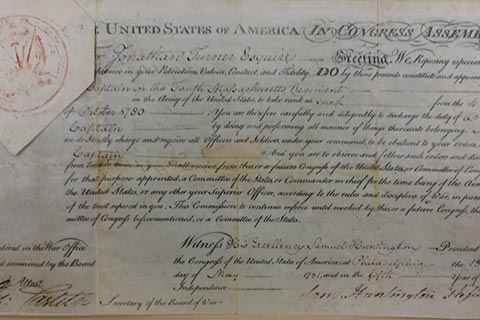 UNITED STATES OF AMERICA IN CONGRESS ASSEMB
Jonathan Turner Esquire Greeting, We, Reposing especial
in your Patriotism, Valour, Conduct, and Fidelity, DO by these presents constitute and appoi
Captain in the Massachusetts Regiment
in the Army of the United States, to take rank as such from the
of October 1780 You are therefore carefully and diligently to discharge the duty of a
Captain by doing and performing all manner of things thereunto belonging.
we do strictly charge and require all Officers and Soldiers under your command, to be obedient to your orders
Captain And you are to observe and follow such orders and dir
from time to time as you shall receive from this or a future Congress of the United States, or Committee of Cong
for that purpose appointed, a Committee of the States, or Commander in chief for the time being of the Arm
the United States, or any other your Superior Officer, according to the rules and discipline of War, in purs
of the trust reposed in you. This Commission to continue in force until revoked by this, or a future Congress, the
mittee of Congress beforementioned, or a Committee of the States.
ntered in the War Office Witness His Excellency Samuel Huntington President
examined by the Board the Congress of the United States of America, at Philadelphia the
Attest day of May 1781 and in the fifth Year of
Independence Sam. Huntington
Secretary of the Board of War